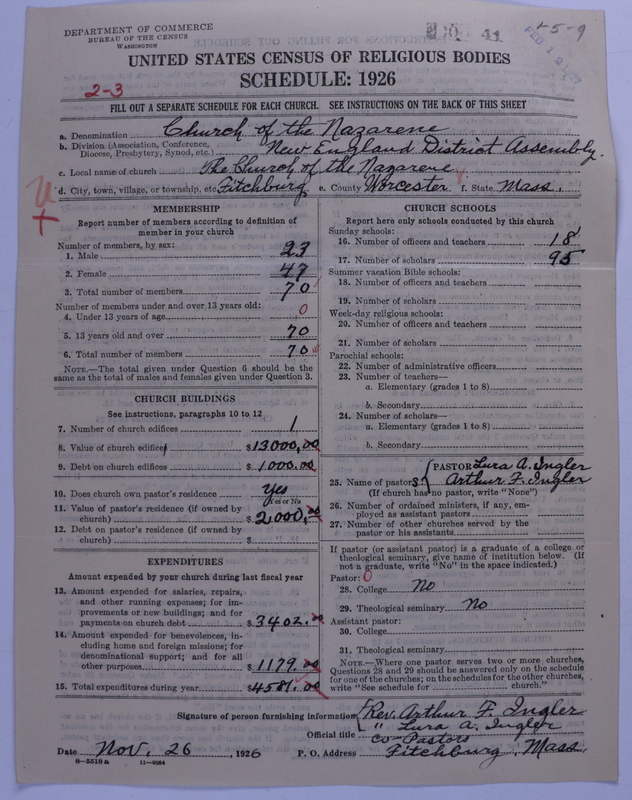 DEPARTMENT OF COMMERCE
BUREAU OF THE CENSUS
WASHINGTON
1-5-9
UNITED STATES CENSUS OF RELIGIOUS BODIES
SCHEDULE: 1926
2-3
FILL OUT A SEPARATE SCHEDULE FOR EACH CHURCH. SEE INSTRUCTIONS ON THE BACK OF THIS SHEET
a. Denomination Church of the Nazarene
b. Division (Association, Conference, Diocese, Presbytery, Synod, etc.) New England District Assembly.
c. Local name of church The Church of the Nazarene
d. City, town, village, or township, etc. Fitchburg e. County Worcester f. State Mass.
MEMBERSHIP
Report number of members according to definition of
member in your church
Number of members, by sex:
1. Male 23
2. Female 47
3. Total number of members 70
Number of members under and over 13 years old:
4. Under 13 years of age 0
5. 13 years old and over 70
6. Total number of members 70
NOTE.—The total given under Question 6 should be
same as the total of males and females given under Question 3.
CHURCH BUILDINGS
See instructions, paragraphs 10 to 12
7. Number of church edifices 1
8. Value of church edifices $13000,00
9. Debt on church edifices $1000.00
10. Does church own pastor's residence Yes
(Yes or No)
11. Value of pastor's residence (if owned by
church) $2000,00
12. Debt on pastor's residence (if owned by
church) $
EXPENDITURES
Amount expended by your church during last fiscal year
13. Amount expended for salaries, repairs,
and other running expenses; for im-
provements or new buildings; and for
payments on church debt $3402.00
14. Amount expended for benevolences, in-
cluding home and foreign missions; for
denominational support; and for all
other purposes $1179.00
15. Total expenditures during year $4581.00
CHURCH SCHOOLS
Report here only schools conducted by this church
Sunday schools:
16. Number of officers and teachers 18
17. Number of scholars 95
Summer vacation Bible schools:
18. Number of officers and teachers
19. Number of scholars
Week-day religious schools:
20. Number of officers and teachers
21. Number of scholars
Parochial schools:
22. Number of administrative officers
23. Number of teachers—
a. Elementary (grades 1 to 8)
b. Secondary
24. Number of scholars—
a. Elementary (grades 1 to 8)
b. Secondary
PASTOR Lura A. Ingler
25. Name of pastors: Arthur F. Ingler
(If church has no pastor, write "None")
26. Number of ordained ministers, if any, em-
ployed as assistant pastors
27. Number of other churches served by the
pastor or his assistants
If pastor (or assistant pastor) is a graduate of a college or
theological seminary, give name of institution below. (If
not a graduate, write "No" in the space indicated.)
Pastor: 0
28. College No
29. Theological seminary No
Assistant pastor:
30. College
31. Theological seminary
NOTE.—Where one pastor serves two or more churches,
Questions 28 and 29 should be answered only on the schedule
for one of the churches; on the schedules for the other churches,
write "See schedule for church."
Signature of person furnishing information Rev. Arthur F. Ingler
" Lura A. Ingler
Official title Co-Pastors
Date Nov. 26, 1926 P. O. Address Fitchburg, Mass.
8—5518a 11—9084